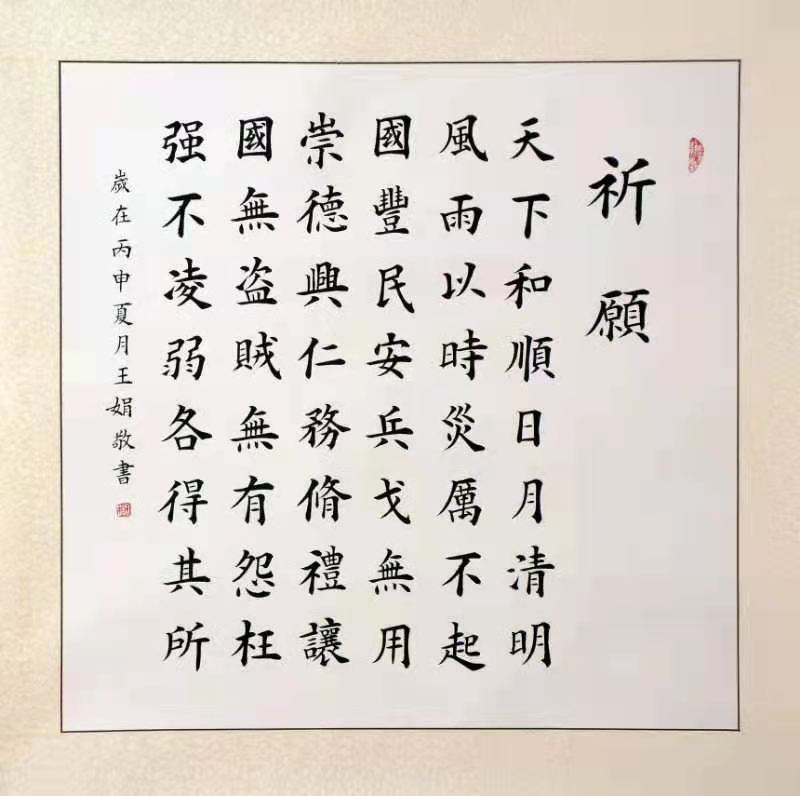 祈願
天下和順日月清明
風雨以時災厲不起
國豐民安兵戈無用
崇德興仁務脩禮讓
國無盗賊無有怨枉
强不凌弱各得其所
嵗在丙申夏月王娟敬書